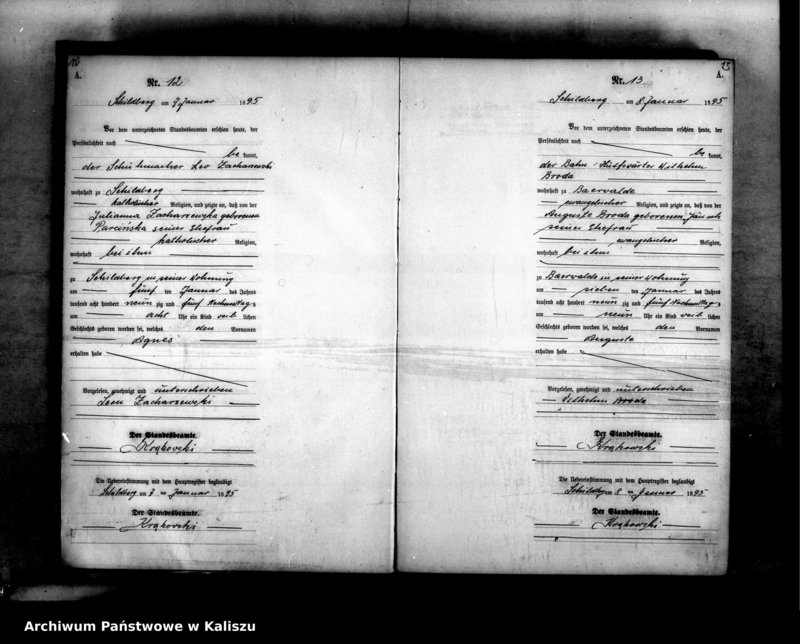 12
A.
Nr. 12
Schildberg am 7 Januar 1895
Vor dem unterzeichneten Standesbeamten erschien heute, der
Persönlichkeit nach
be kannt,
der Schuhmacher Leo Zacharzewski
wohnhaft zu Schildberg
katholischer Religion, und zeigte an, daß von der
Julianna Zacharzewska geborenen
Parcińska seiner Ehefrau
katholischer Religion,
wohnhaft bei ihm
zu Schildberg in seiner Wohnung
am fünf ten Januar des Jahres
tausend acht hundert neun zig und fünf Nachmittags
um acht Uhr ein Kind weib lichen
Geschlechts geboren worden sei, welches den Vornamen
Agnes
erhalten habe
Vorgelesen, genehmigt und unterschrieben
Leon Zacharzewski
Der Standesbeamte.
Krąkowski
Die Uebereinstimmung mit dem Hauptregister beglaubigt
Schildberg am 7 ten Januar 1895
Der Standesbeamte.
Krąkowski
13
A.
Nr. 13
Schildberg am 8 Januar 1895
Vor dem unterzeichneten Standesbeamten erschien heute, der
Persönlichkeit nach
be kannt,
der Bahn-Hilfswärter Wilhelm
Broda
wohnhaft zu Baerwalde
evangelischer Religion, und zeigte an, daß von der
Auguste Broda geborenen
seiner Ehefrau
evangelischer Religion,
wohnhaft bei ihm
zu Baerwalde in seiner Wohnung
am sieben ten Januar des Jahres
tausend acht hundert neun zig und fünf Nachmittags
um neun Uhr ein Kind weib lichen
Geschlechts geboren worden sei, welches den Vornamen
Auguste
erhalten habe
Vorgelesen, genehmigt und unterschrieben
Wilhelm Broda
Der Standesbeamte.
Krąkowski
Die Uebereinstimmung mit dem Hauptregister beglaubigt
Schildberg am 8 ten Januar 1895
Der Standesbeamte.
Krąkowski
Archiwum Państwowe w Kaliszu